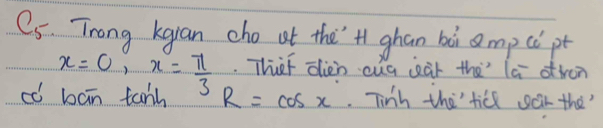 C5. Trong kgian cho vt thể H ghạn bởi 2mp có pt
x = 0, x = π/3. Thiết diện của vật thể là đtròn
có bán kính R = cos x. Tính thể tích vật thể